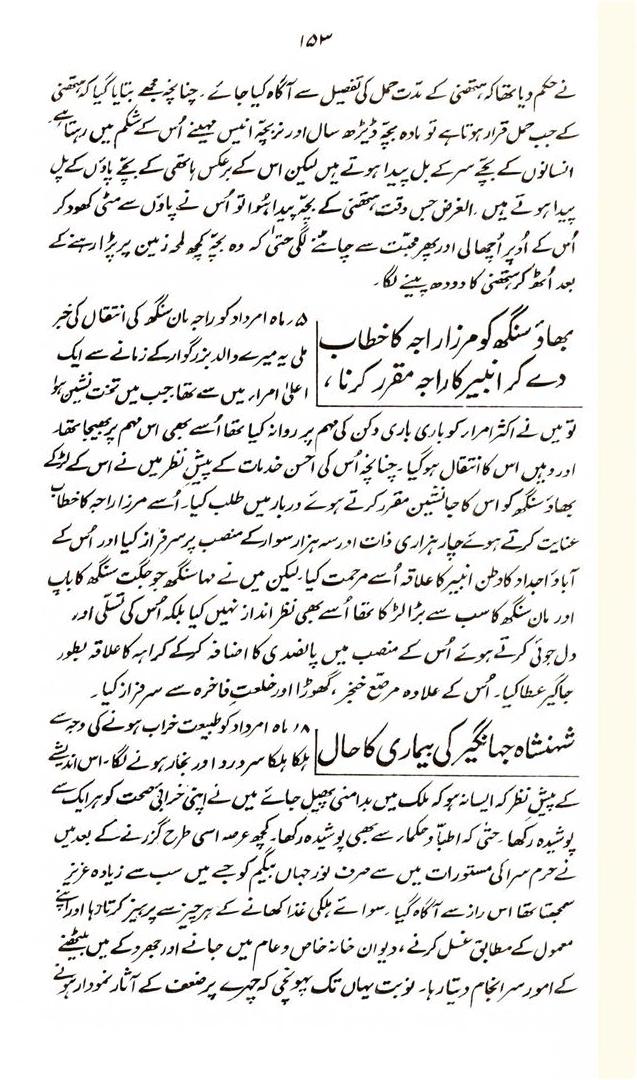 ۱۵۳
نے حکم دیا تھا کہ ہتھنی کے مدّت حمل کی تفصیل سے آگاہ کیا جائے ۔ چنانچہ مجھے بتایا گیا کہ ہتھنی
کے جب حمل قرار ہوتا ہے تو مادہ بچّہ ڈیڑھ سال اور نر بچّہ انیس مہینے اُس کے شکم میں رہتا ہے
انسانوں کے بچّے سر کے بل پیدا ہوتے ہیں لیکن اس کے برعکس ہاتھی کے بچّے پاؤں کے بل
پیدا ہوتے ہیں ۔ الغرض جس وقت ہتھنی کے بچّہ پیدا ہُوا تو اُس نے پاؤں سے مٹی کھود کر
اُس کے اُوپر اُچھالی اور پھر محبت سے چاٹنے لگی حتیٰ کہ وہ بچّہ کچھ لمحہ زمین پر پڑا رہنے کے
بعد اُٹھ کر ہتھنی کا دودھ پینے لگا ۔
بھاؤ سنگھ کو مرزا راجہ کا خطاب
دے کر انبیر کا راجہ مقرر کرنا ،
۵؍ ماہ امرداد کو راجہ مان سنگھ کی انتقال کی خبر
ملی یہ میرے والد بزرگوار کے زمانے سے ایک
اعلیٰ امرار میں سے تھا جب میں تخت نشین ہوا
تو میں نے اکثر امرار کو باری باری دکن کی مہم پر روانہ کیا تھا اُسے بھی اس مہم پر بھیجا تھا ۔
اور وہیں اس کا انتقال ہوگیا ۔ چنانچہ اُس کی احسن خدمات کے پیشِ نظر میں نے اس کے لڑکے
بھاؤ سنگھ کو اس کا جانشین مقرر کرتے ہوئے دربار میں طلب کیا ۔ اُسے مرزا راجہ کا خطاب
عنایت کرتے ہوئے چار ہزاری ذات اور سہ ہزار سوار کے منصب پر سرفراز کیا اور اُس کے
آباؤ اجداد کا وطن انبیر کا علاقہ اُسے مرحمت کیا ۔ لیکن میں نے مہا سنگھ جو جگت سنگھ کا باپ
اور مان سنگھ کا سب سے بڑا لڑکا تھا اُسے بھی نظر انداز نہیں کیا بلکہ اُس کی تسلّی اور
دل جوئی کرتے ہوئے اُس کے منصب میں پانصدی کا اضافہ کر کے کراہہ کا علاقہ بطور
جاگیر عطا کیا ۔ اُس کے علاوہ مرصّع خنجر ، گھوڑا اور خلعتِ فاخرہ سے سرفراز کیا ۔
شہنشاہ جہانگیر کی بیماری کا حال
۱۸؍ ماہ امرداد کو طبیعت خراب ہونے کی وجہ سے
ہلکا ہلکا سر درد اور بخار ہونے لگا ۔ اس اندیشے
کے پیشِ نظر کہ ایسا نہ ہو کہ ملک میں بدامنی پھیل جائے میں نے اپنی خرابیٔ صحت کو ہر ایک سے
پوشیدہ رکھا ۔ حتّیٰ کہ اطبّا و حکمار سے بھی پوشیدہ رکھا ۔ کچھ عرصہ اسی طرح گزرنے کے بعد میں
نے حرم سرا کی مستورات میں سے صرف نور جہاں بیگم کو جسے میں سب سے زیادہ عزیز
سمجھتا تھا اس راز سے آگاہ کیا ۔ سوائے ہلکی غذا کھانے کے ہر چیز سے پرہیز کرتا رہا اور اپنے
معمول کے مطابق غسل کرنے ، دیوان خانہ خاص و عام میں جانے اور جھروکے میں بیٹھنے
کے امور سر انجام دیتا رہا ۔ نوبت یہاں تک پہونچی کہ چہرے پر ضعف کے آثار نمودار ہونے